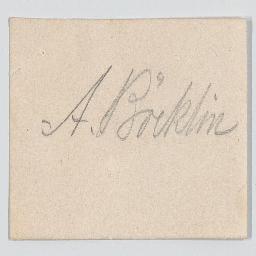 A. Böcklin